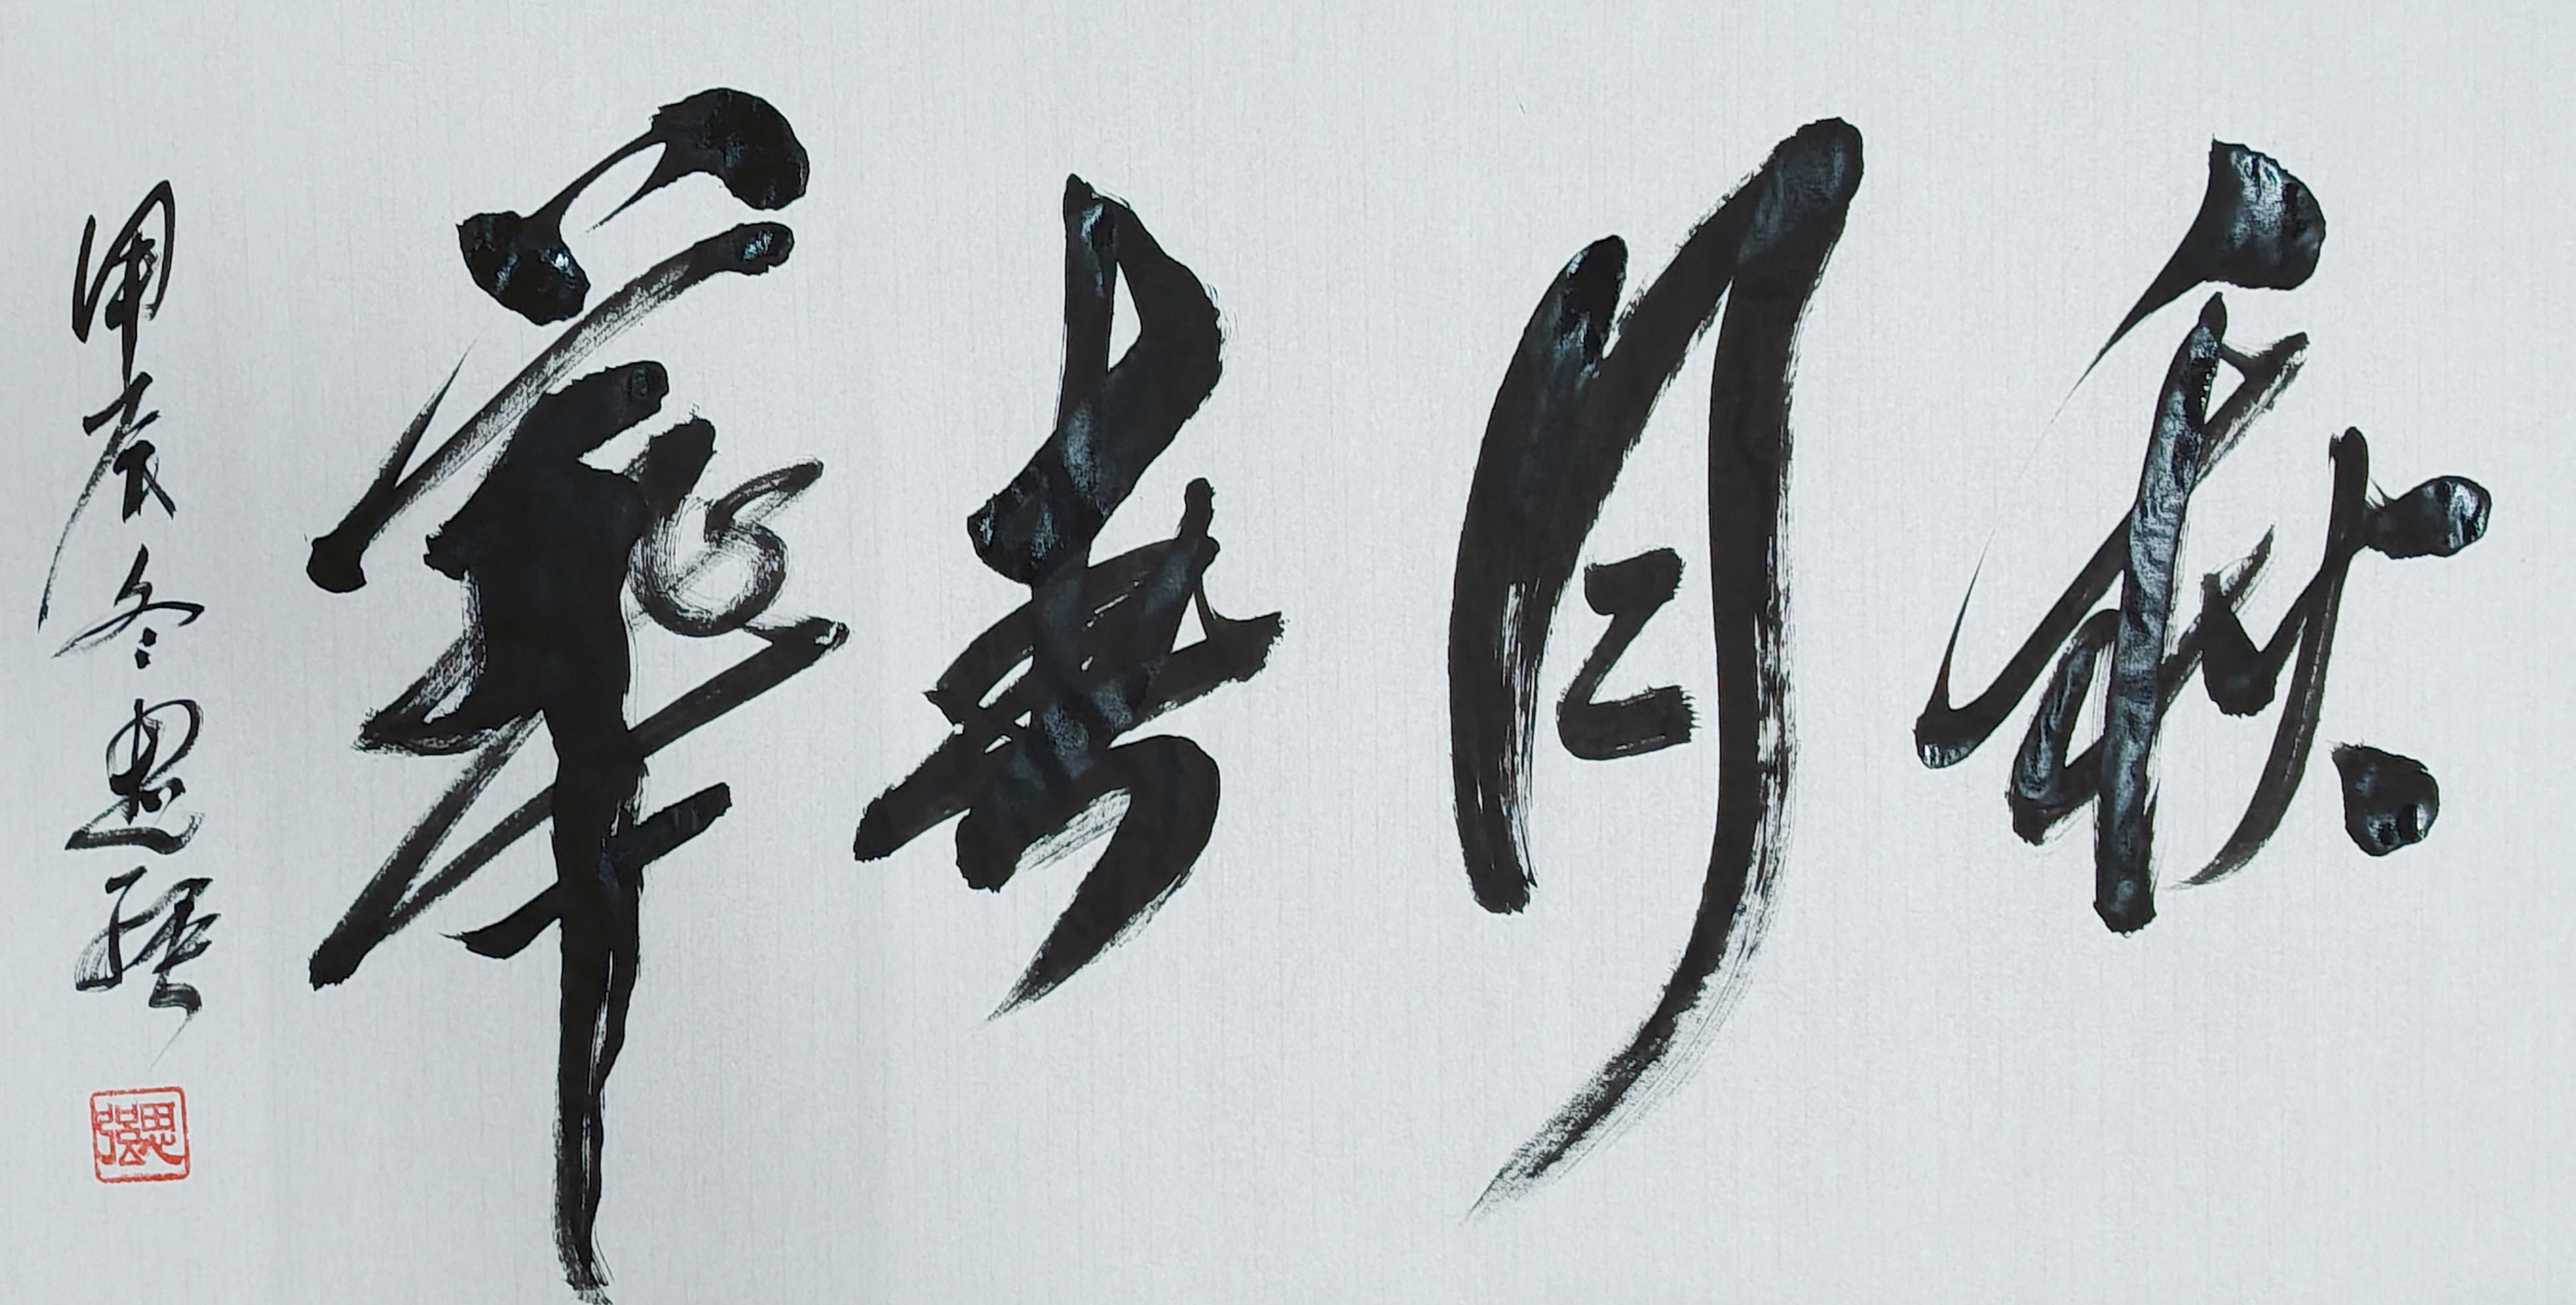 秋月春華
甲辰冬思強
思強